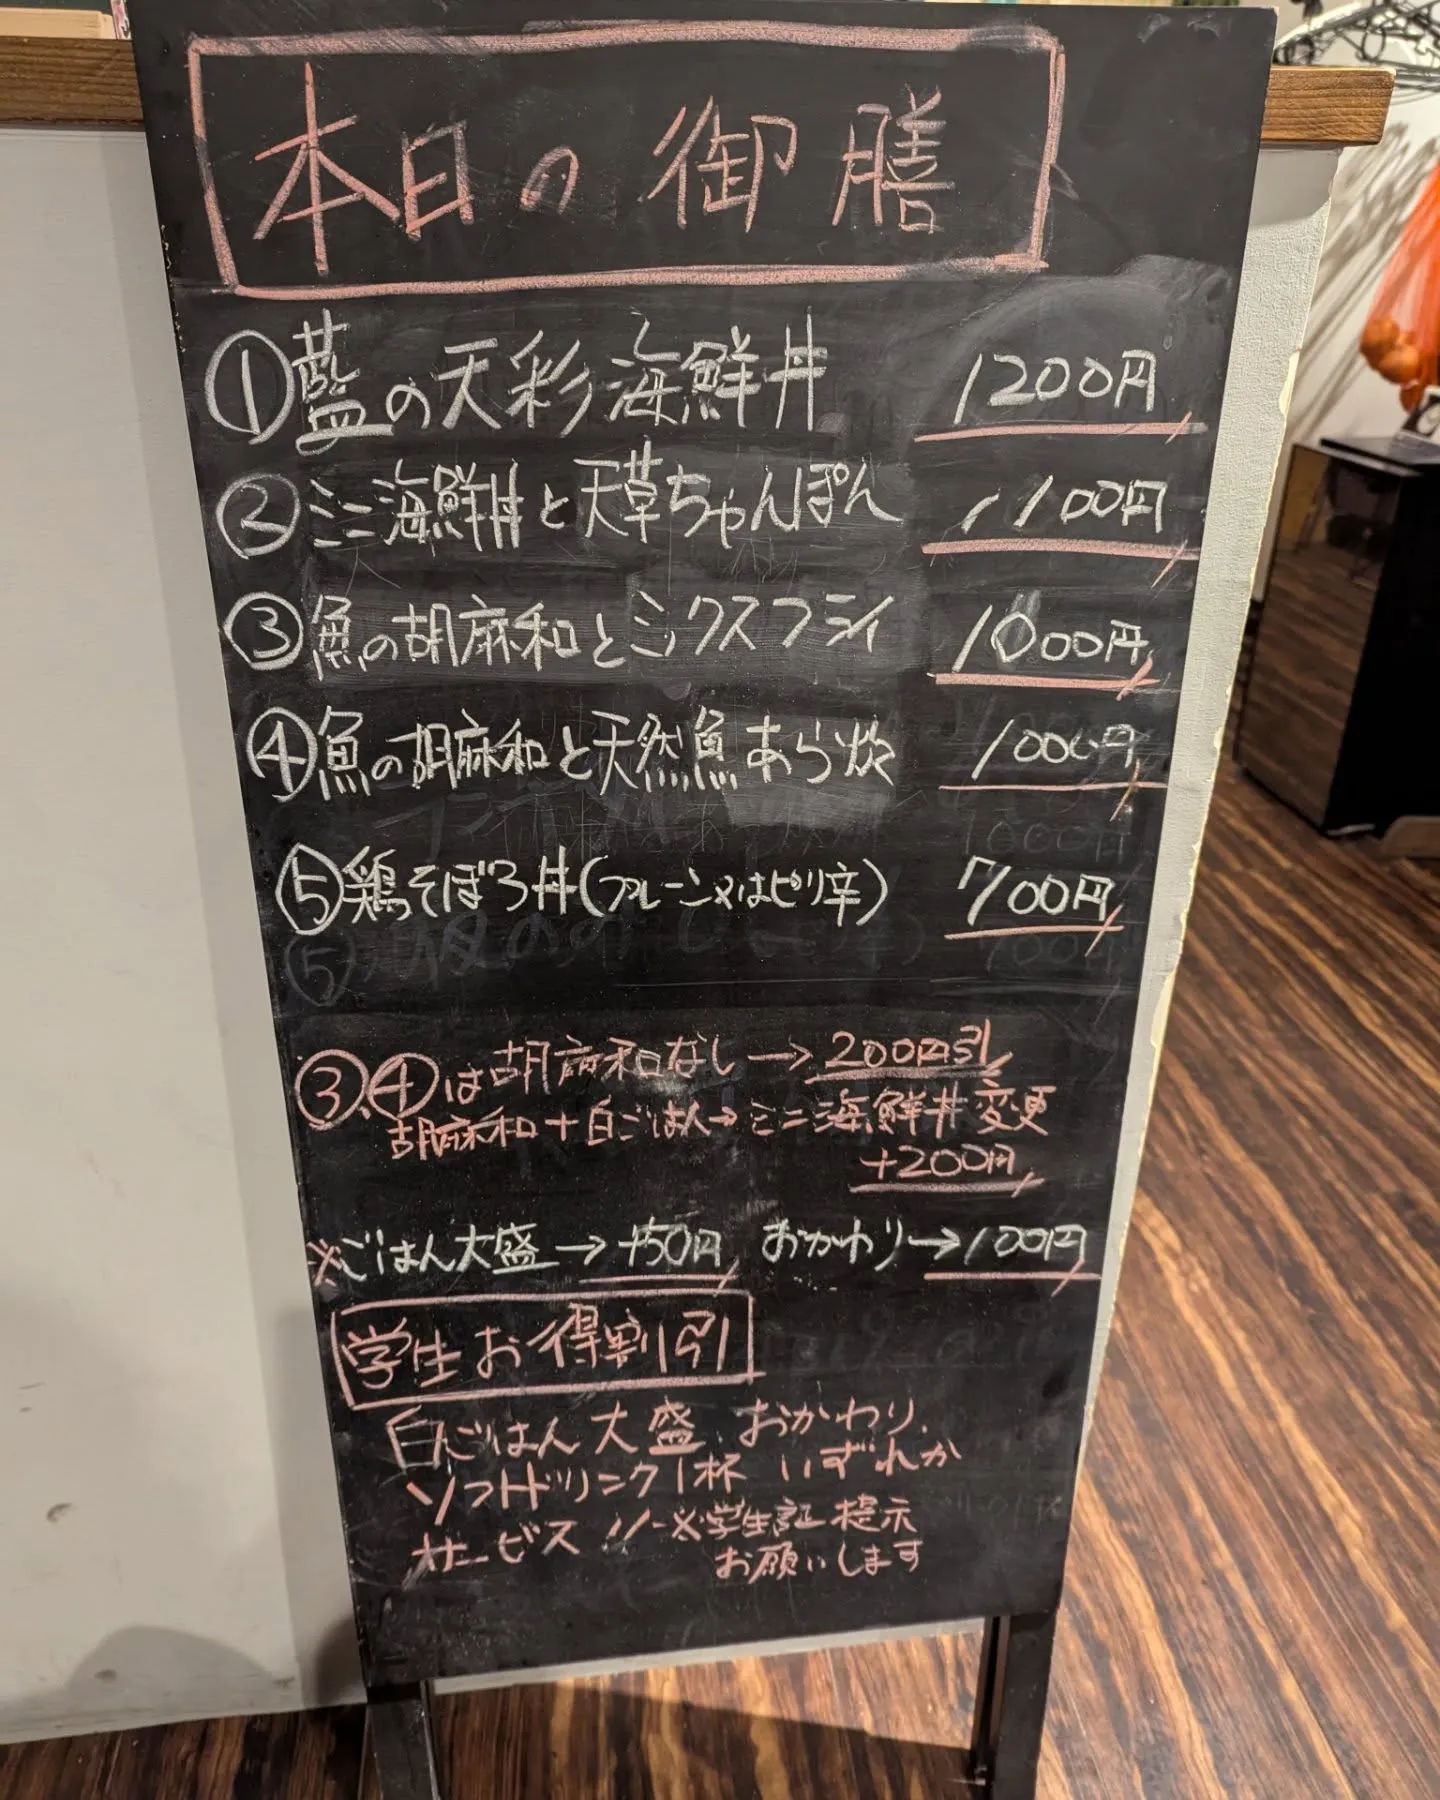 本日の御膳
①藍の天彩海鮮丼 1200円
②ミニ海鮮丼と天草ちゃんぽん 1100円
③魚の胡麻和とミックスフライ 1000円
④魚の胡麻和と天然魚あら炊 1000円
⑤鶏そぼろ丼(プレーン又はピリ辛) 700円
③、④は胡麻和なし→200円引
胡麻和+白ごはん→ミニ海鮮丼変更
+200円
※ごはん大盛→+50円 おかわり→100円
学生お得割引
白ごはん大盛、おかわり、
ソフトドリンク1杯 いずれか
サービス!! ※学生証提示
お願いします